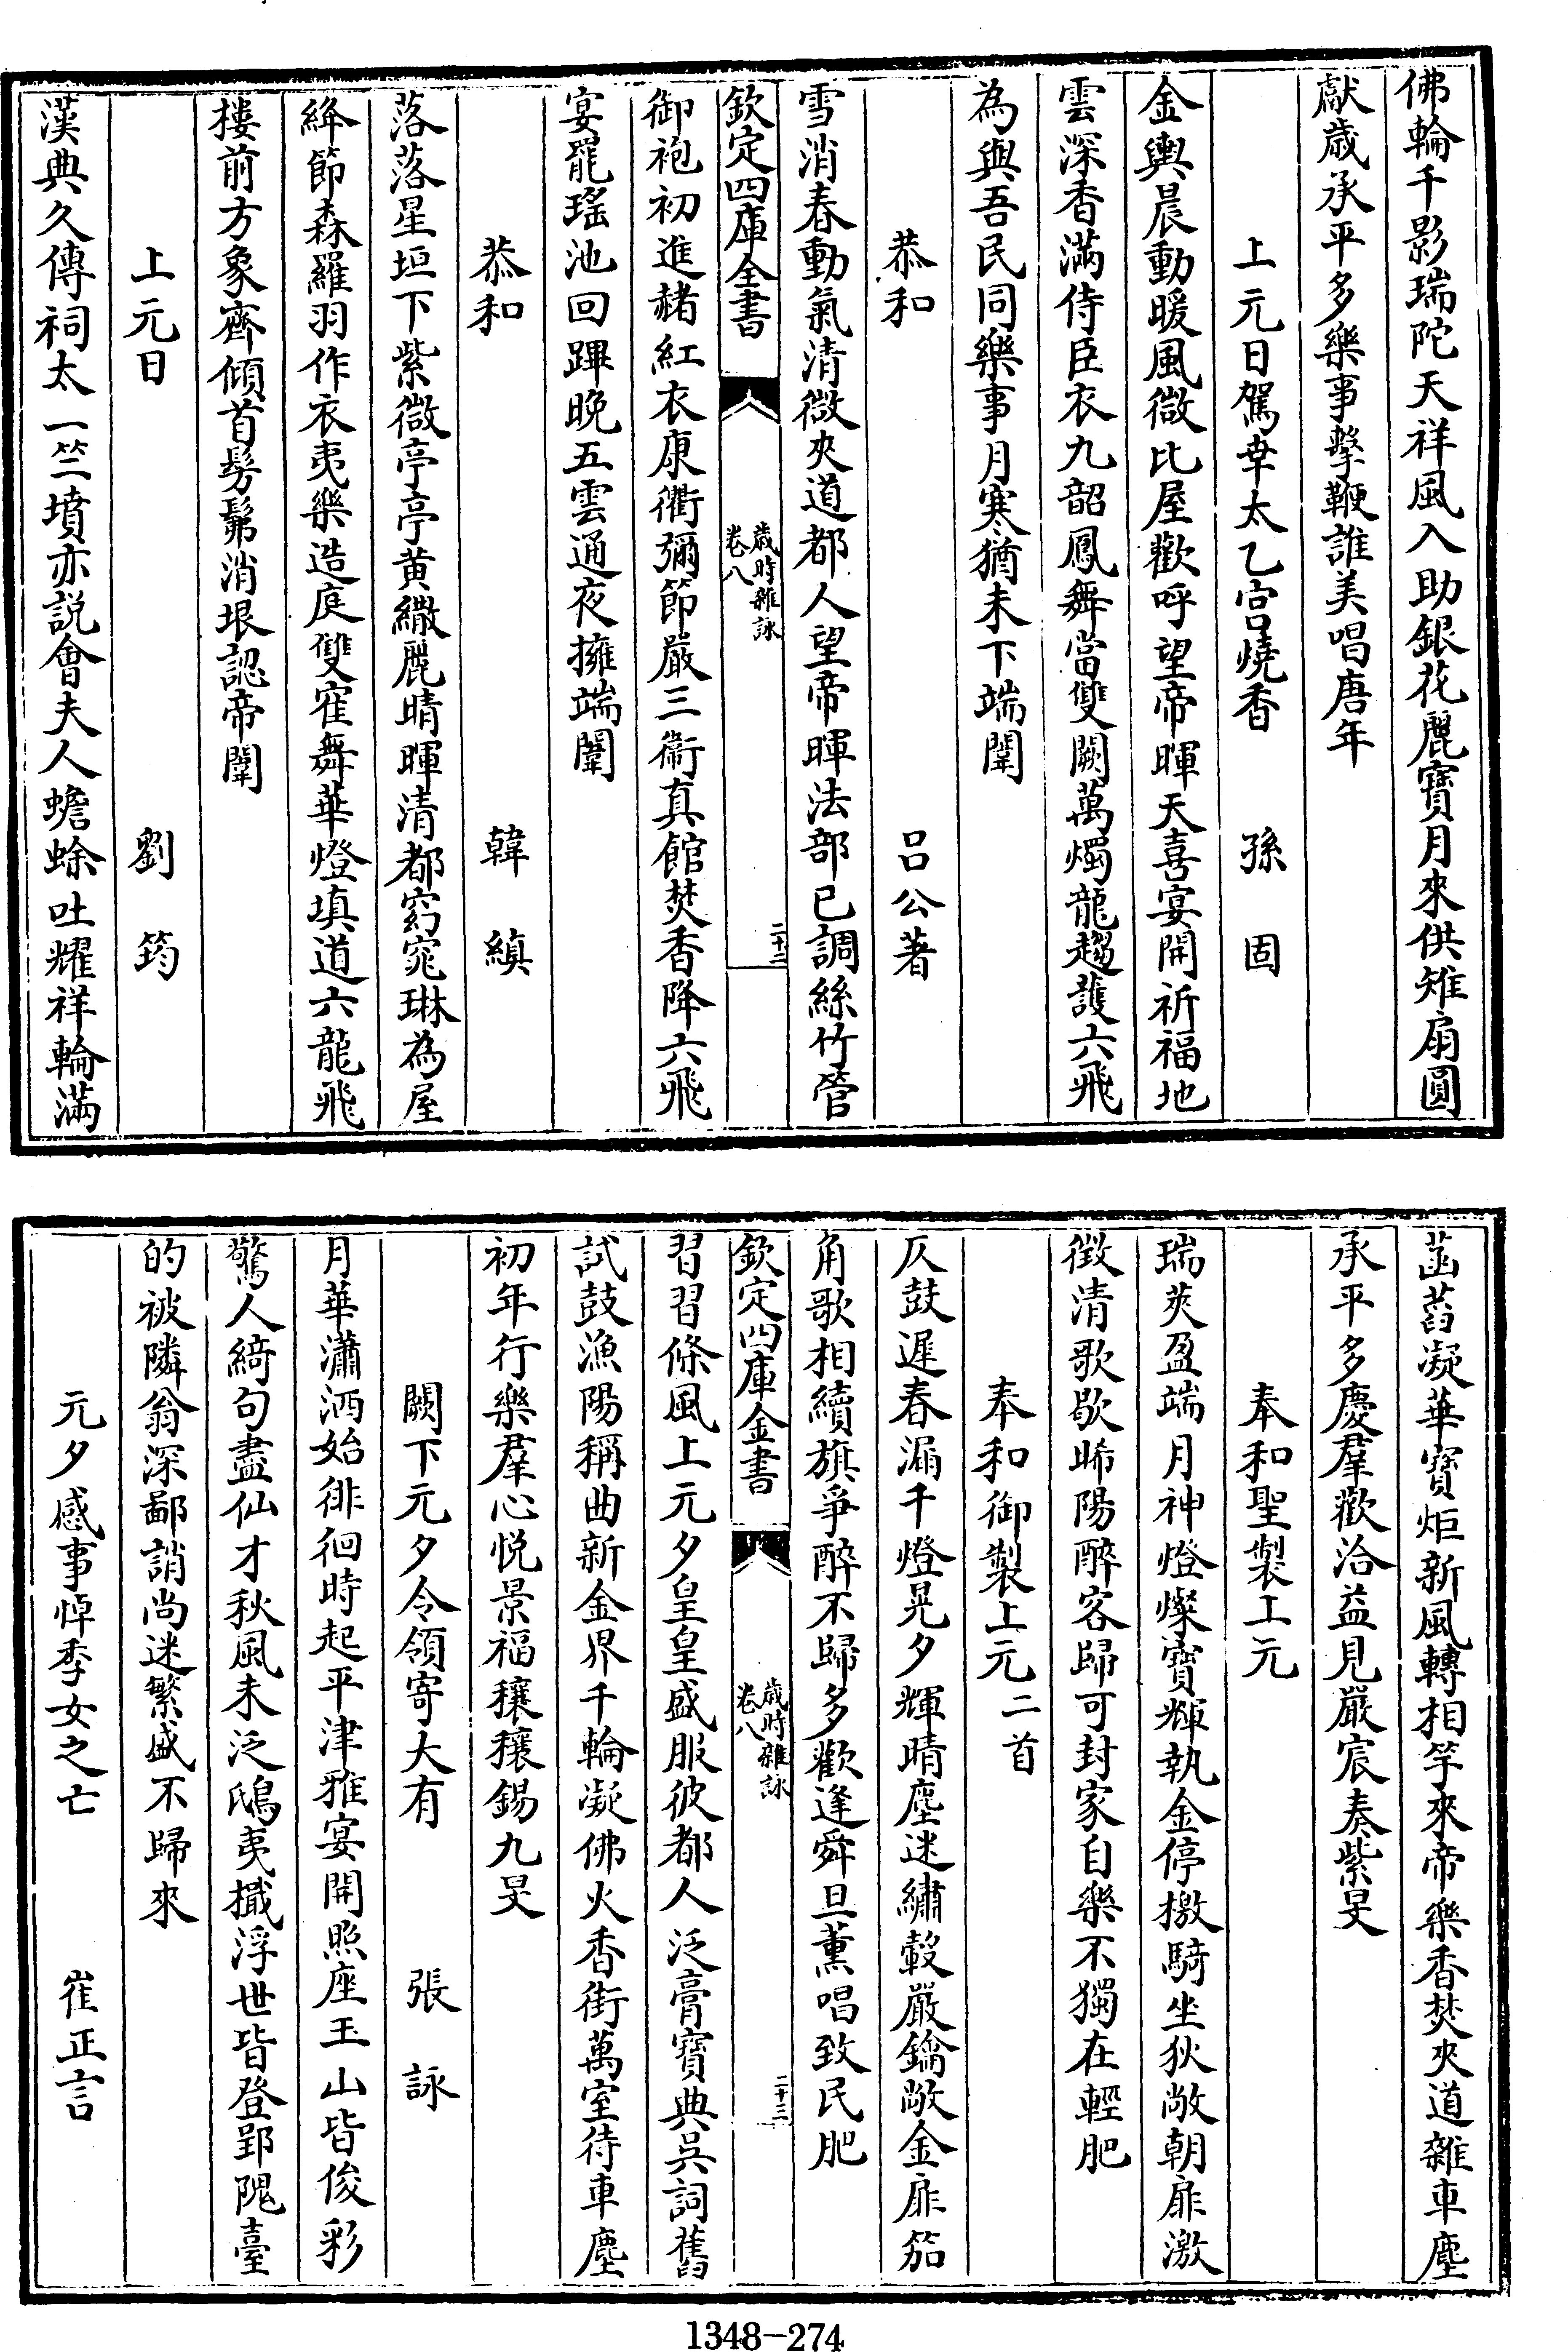 佛輪千影瑞陀天祥風入助銀花麗寶月來供雉扇圓
獻歲承平多樂事擊鞭誰美唱唐年
上元日駕幸太乙宮燒香 孫固
金輿晨動暖風微比屋歡呼望帝暉天喜宴開祈福地
雲深香滿侍臣衣九韶鳳舞當雙闕萬燭龍趨護六飛
為與吾民同樂事月寒猶未下端闈
恭和 呂公著
雪消春動氣清微夾道都人望帝暉法部已調絲竹管
欽定四庫全書 歲時雜詠 卷八 二十三
御袍初進赭紅衣康衢彌節嚴三衛真館焚香降六飛
宴罷瑤池回蹕晚五雲通夜擁端闈
恭和 韓縝
落落星垣下紫微亭亭黃繖麗晴暉清都窈窕琳為屋
絳節森羅羽作衣夷樂造庭雙寉舞華燈填道六龍飛
摟前方象齊傾首髣髴消垠認帝闈
上元日 劉筠
漢典久傳祠太一竺墳亦説會夫人蟾蜍吐耀祥輪滿
菡萏凝華寶炬新風轉相竿來帝樂香焚夾道雜車塵
承平多慶羣歡洽益見嚴宸奏紫旻
奉和聖製上元
瑞莢盈端月神燈燦寶輝執金停檄騎坐狄敞朝扉激
徵清歌歇晞陽醉客歸可封家自樂不獨在輕肥
奉和御製上元二首
仄鼓遲春漏千燈晃夕輝晴塵迷繡轂嚴鑰敞金扉笳
角歌相續旗爭醉不歸多歡逢舜旦薰唱致民肥
欽定四庫全書 歲時雜詠 卷八 二十三
習習條風上元夕皇皇盛服彼都人泛膏寶典吳詞舊
試鼓漁陽稱曲新金界千輪凝佛火香街萬室待車塵
初年行樂羣心悦景福穰穰錫九旻
闕下元夕令領寄大有 張詠
月華瀟洒始徘徊時起平津雅宴開照座玉山皆俊彩
驚人綺句盡仙才秋風未泛鴟夷檝浮世皆登郢隗臺
的被隣翁深鄙誚尚迷繁盛不歸來
元夕感事悼季女之亡 崔正言
1348-274